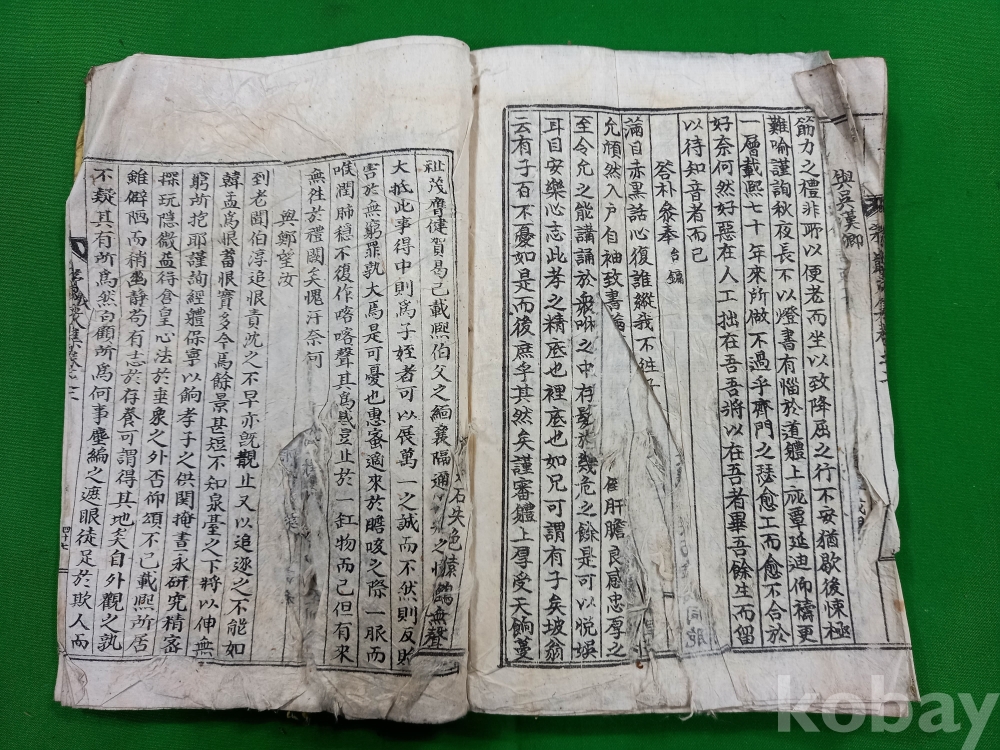 與吳漢卿
筋力之禮非所以便老而坐以致降屈之行不安猶歇後悚極
難喻謹詢秋夜長不以燈書有惱於道體上 覃延迪仰禱更
一層載熙七十年來所做不過乎齊門之瑟愈工而愈不合於
好奈何然好惡在人工拙在吾吾將以在吾者畢吾餘生而留
以待知音者而已
答朴參奉
滿目赤黑話心復誰縱我不往
肝膽良感忠厚之
允頎然入戶自袖致書
至今允之能講誦於 咻之中存 於幾危之餘是可以悅娛
耳目安樂心志此孝之精底也裡底也如兄可謂有子矣坡翁
云有子百不憂如是而後庶乎其然矣謹審體上厚受天餉蔓
祉茂膺健賀曷已載熙伯父之緬襄隔
石失色猿 無聲
大抵此事得中則爲子姪者可以展萬一之誠而不然則反貽
害於無窮罪孰大焉是可憂也惠蜜適來於瞻咳之際一服而
喉潤肺穩不復作喀喀聲其爲感豈止於一紅物而已但有來
無往於禮闕矣愧汗奈何
與鄭望汝
到老聞伯淳追恨責沈之不早亦旣覯止又以追逐之不能如
韓孟爲恨蓄恨實多今焉餘景甚短不知泉臺之下將以伸無
窮所挖耶謹詢經體保寧以餉孝子之供閑掩晝永硏究精密
探玩隱微益得倉皇心法於垂象之外否仰頌不已載熙所居
雖僻陋而稍幽靜苟有志於存養可謂得其地矣自外觀之孰
不疑其有所爲然自顧所爲何事塵編之遮眼徒足於欺人而
四十七
kobay